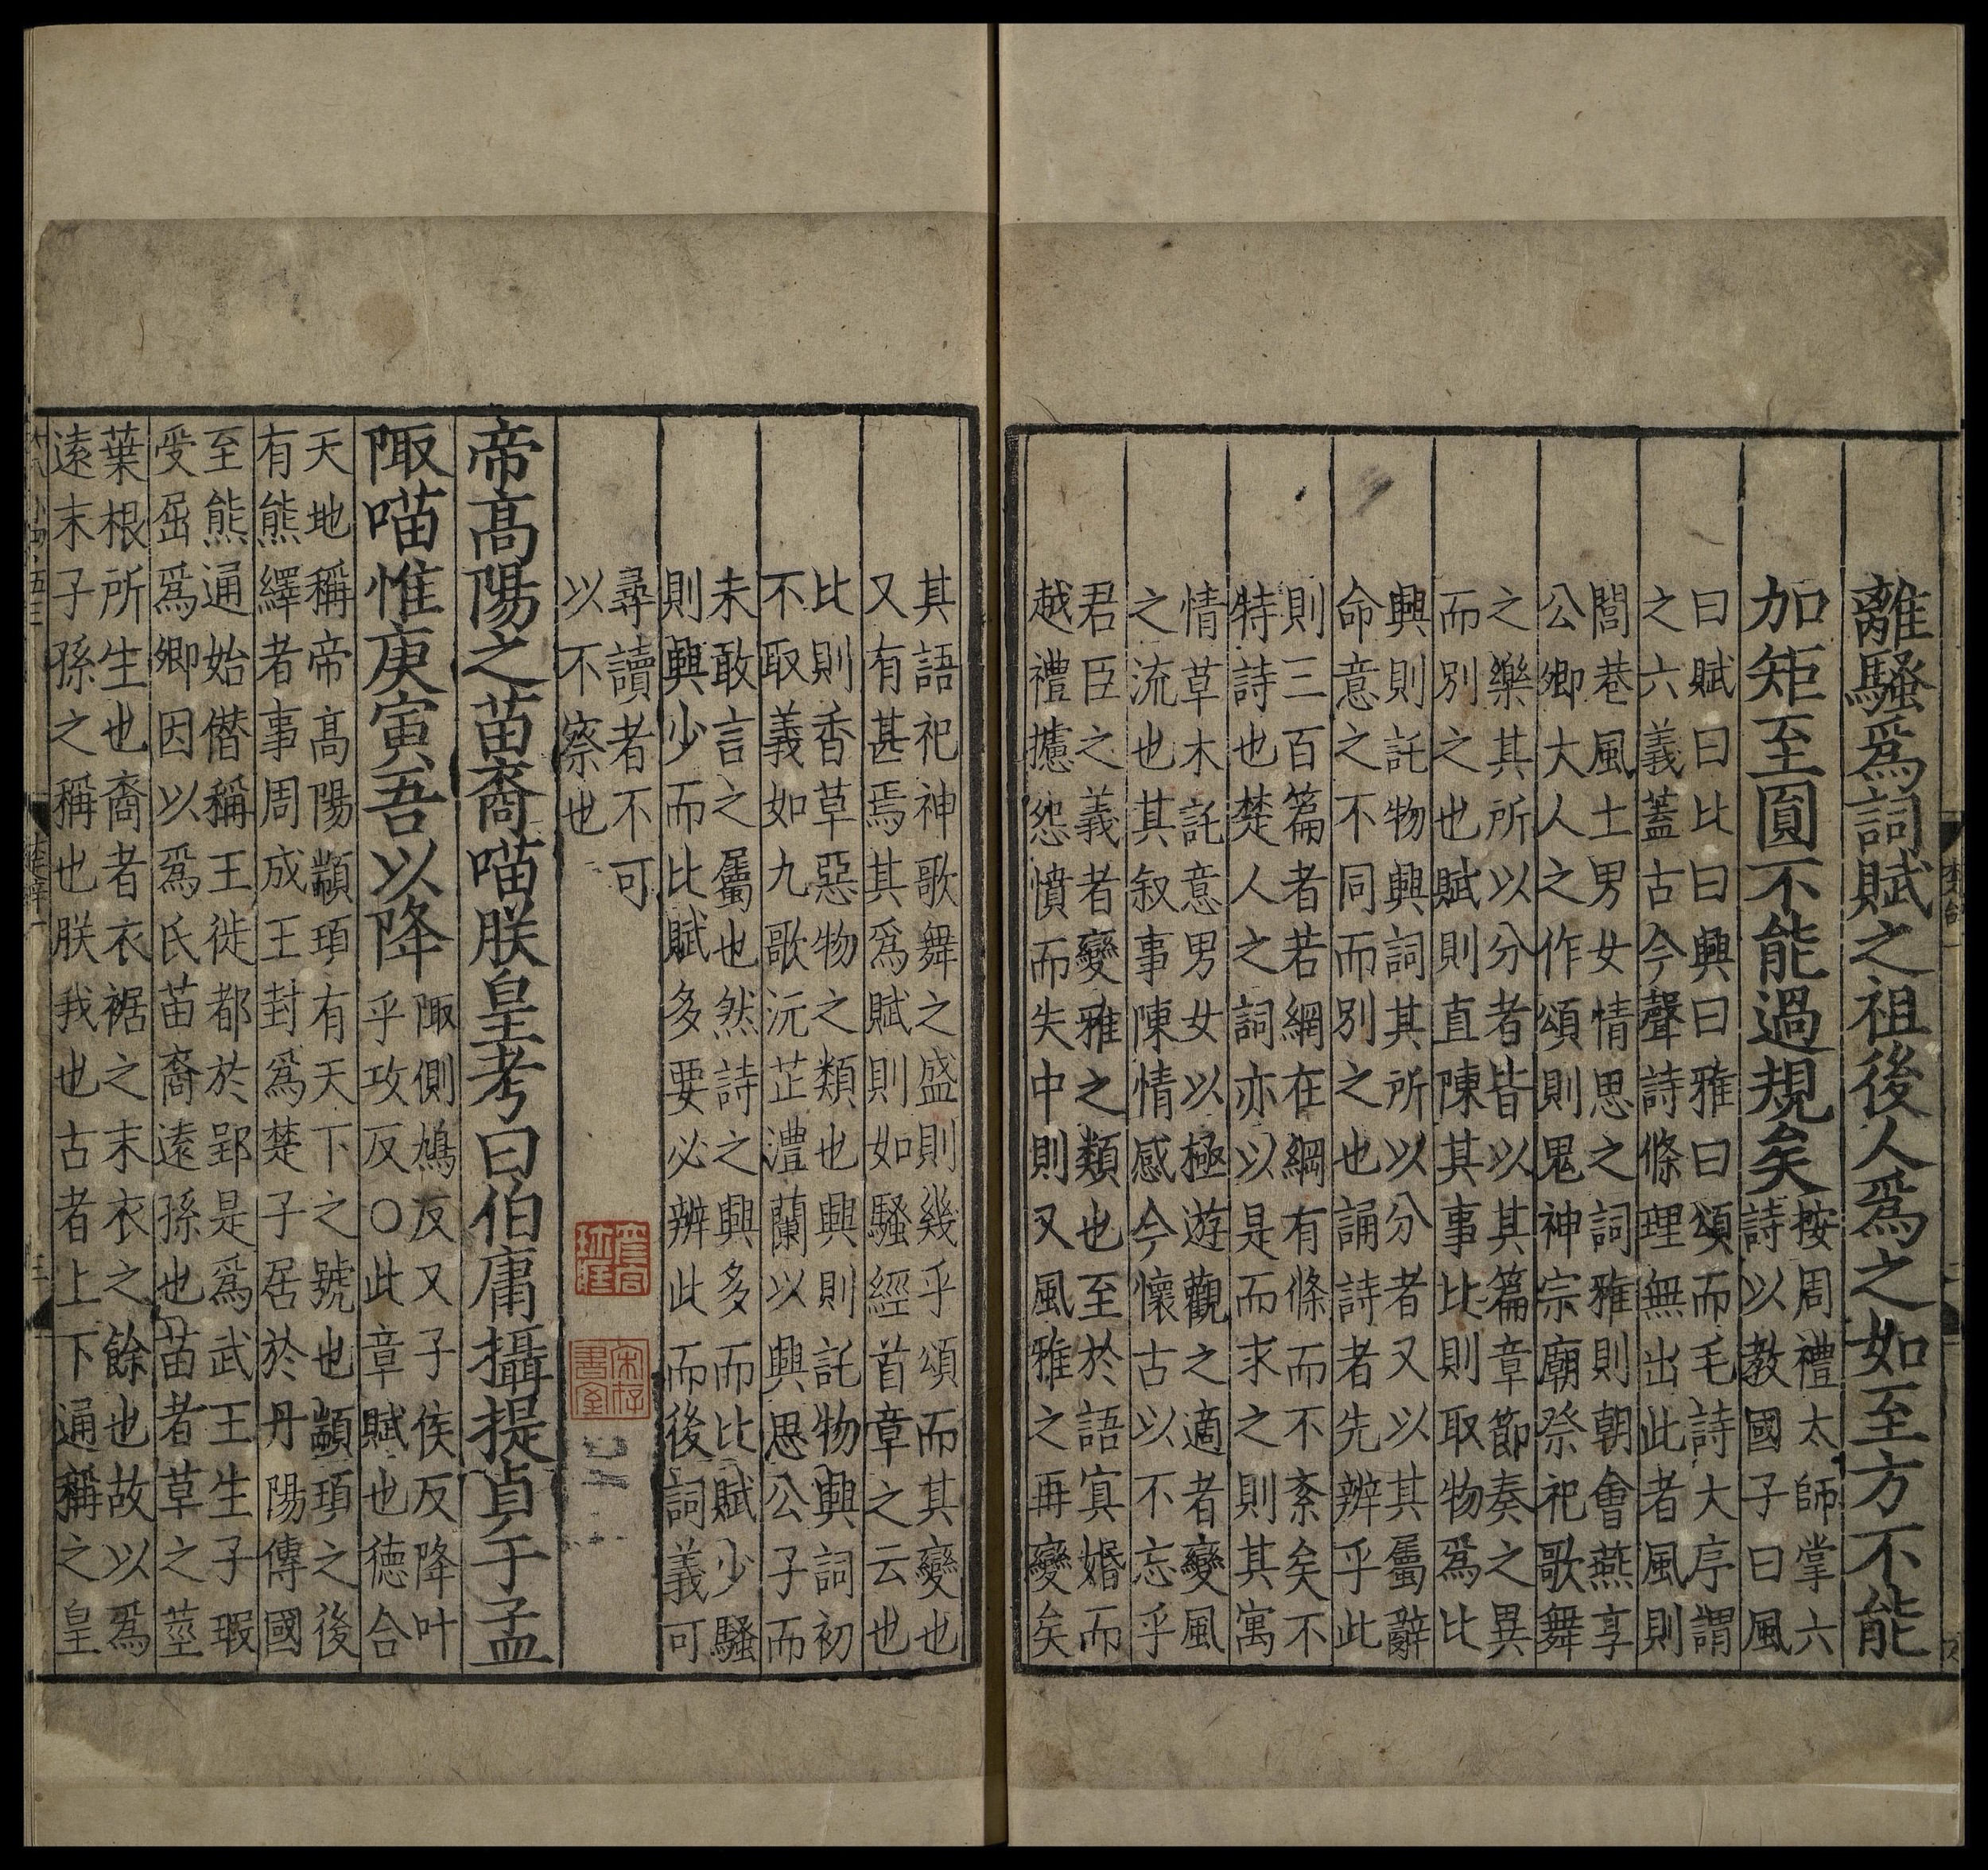 離騷爲詞賦之祖後人爲之如至方不能
加矩至圎不能過規矣
按周禮太師掌六
詩以教國子曰風
曰賦曰比曰興曰雅曰頌而毛詩大序謂
之六義蓋古今聲詩條理無出此者風則
閭巷風土男女情思之詞雅則朝會燕享
公卿大人之作頌則鬼神宗廟祭祀歌舞
之樂其所以分者皆以其篇章節奏之異
而別之也賦則直陳其事比則取物爲比
興則託物興詞其所以分者又以其屬辭
命意之不同而別之也誦詩者先辨乎此
則三百篇者若網在綱有條而不紊矣不
特詩也楚人之詞亦以是而求之則其寓
情草木託意男女以極遊觀之適者變風
之流也其叙事陳情感今懷古以不忘乎
君臣之義者變雅之類也至於語冥婚而
越禮攄怨憤而失中則又風雅之再變矣
其語祀神歌舞之盛則幾乎頌而其變也
又有甚焉其爲賦則如騷經首章之云也
比則香草惡物之類也興則託物興詞初
不取義如九歌沅芷澧蘭以興思公子而
未敢言之屬也然詩之興多而比賦少騷
則興少而比賦多要必辨此而後詞義可
尋讀者不可
以不察也
宋存書室
帝高陽之苗裔喵朕皇考曰伯庸攝提貞于孟
陬喵惟庚寅吾以降
陬側鳩反又子侯反降叶
乎攻反○此章賦也德合
天地稱帝高陽顓頊有天下之號也顓頊之後
有熊繹者事周成王封爲楚子居於丹陽傳國
至熊通始僭稱王徙都於郢是爲武王生子瑕
受屈爲卿因以爲氏苗裔遠孫也苗者草之莖
葉根所生也裔者衣裾之末衣之餘也故以爲
遠末子孫之稱也朕我也古者上下通稱之皇